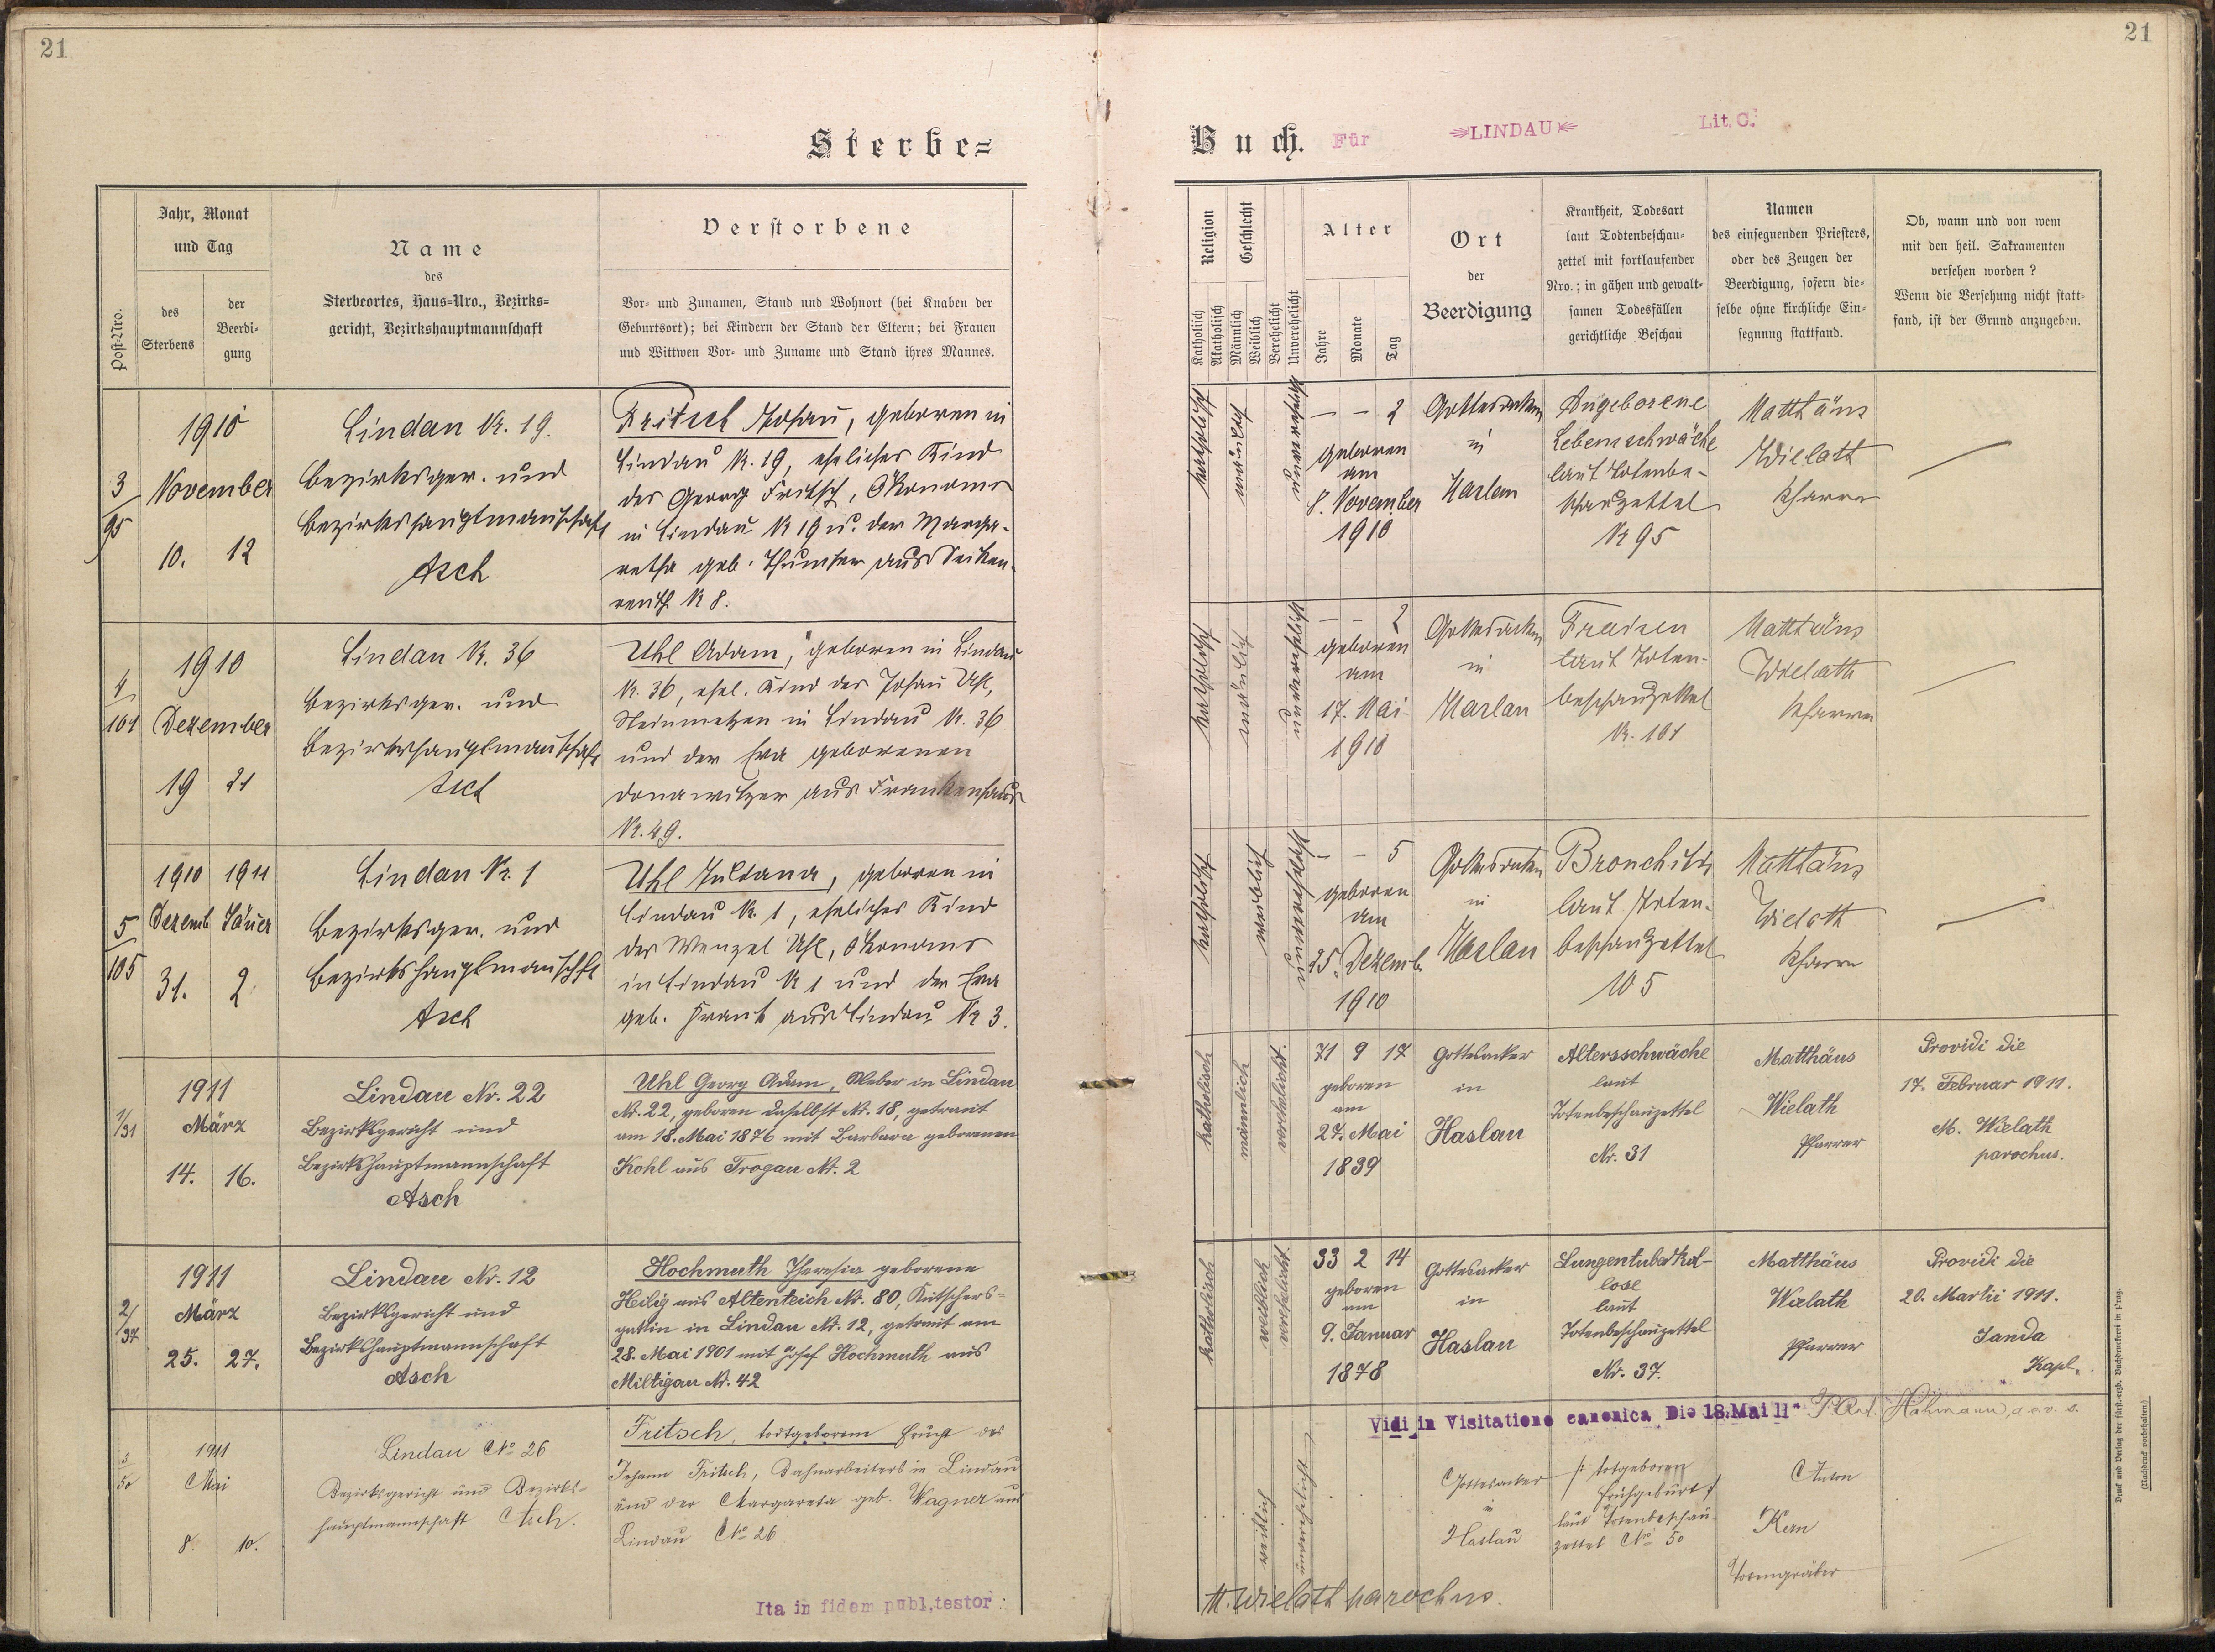 21
21
Sterbe=
Buch. Für LINDAU Lit. C.
Post-Nro.
Jahr, Monat
und Tag
des
Sterbens
der
Beerdi-
gung
Name
des
Sterbeortes, Haus=Nro., Bezirks=
gericht, Bezirkshauptmannschaft
Verstorbene
Vor- und Zunamen, Stand und Wohnort (bei Knaben der
Geburtsort); bei Kindern der Stand der Eltern; bei Frauen
und Wittwen Vor- und Zuname und Stand ihres Mannes.
Religion
Katholisch
Akatholisch
Geschlecht
Männlich
Weiblich
Verehelicht
Unverehelicht
Alter
Jahre
Monate
Tag
Ort
der
Beerdigung
Krankheit, Todesart
laut Todtenbeschau-
zettel mit fortlaufender
Nro.; in gähen und gewalt-
samen Todesfällen
gerichtliche Beschau
Namen
des einsegnenden Priesters,
oder des Zeugen der
Beerdigung, sofern die-
selbe ohne kirchliche Ein-
segnung stattfand.
Ob, wann und von wem
mit den heil. Sakramenten
versehen worden?
Wenn die Versehung nicht statt-
fand, ist der Grund anzugeben.
3
95
1910
November
10. 12
Lindau Nr. 19.
Bezirksger. und
Bezirkshauptmannschaft
Asch
Fritsch Johann, geboren in
Lindau Nr. 19, eheliches Kind
des Georg Fritsch, Ökonoms
in Lindau Nr 19 u. der Marga-
retha geb. Thumser aus
reuth Nr 8.
katholisch
männlich
unverehelicht
– – 2
geboren
am
8. November
1910
Gottesacker
in
Haslau
Angeborene
Lebensschwäche
laut Totenbe-
schauzettel
Nr 95
Matthäus
Wielath
Pfarrer
4
101
1910
Dezember
19 21
Lindau Nr. 36
Bezirksger. und
Bezirkshauptmannschaft
Asch
Uhl Adam, geboren in Lindau
Nr. 36, ehel. Kind des Johann Uhl,
Steinmetzen in Lindau Nr. 36
und der Eva geborenen
Donawitzer aus Frankenhaus
Nr. 49.
katholisch
männlich
unverehelicht
– – 2
geboren
am
17. Mai
1910
Gottesacker
in
Haslau
Fraisen
laut Toten-
beschauzettel
Nr. 101
Matthäus
Wielath
Pfarrer
5
105
1910 1911
Dezemb. Jäner
31. 2
Lindau Nr. 1
Bezirksger. und
Bezirkshauptmannschft
Asch
Uhl Juliana, geboren in
Lindau Nr. 1, eheliches Kind
des Wenzel Uhl, Ökonoms
in Lindau Nr 1 und der Eva
geb. Frank aus Lindau Nr 3.
katholisch
weiblich
unverehelicht
– – 5
geboren
am
25. Dezemb.
1910
Gottesacker
in
Haslau
Bronchitis
laut Toten-
beschauzettel
105
Matthäus
Wielath
Pfarrer
1/31
1911
März
14. 16.
Lindau Nr. 22
Bezirksgericht und
Bezirkshauptmannschaft
Asch
Uhl Georg Adam, Weber in Lindau
Nr. 22, geboren daselbst Nr. 18, getraut
am 18. Mai 1876 mit Barbara geborenen
Kohl aus Trogau Nr. 2
katholisch
männlich
verehelicht.
71 9 17
geboren
am
27. Mai
1839
Gottesacker
in
Haslau
Altersschwäche
laut
Totenbeschauzettel
Nr. 31
Matthäus
Wielath
Pfarrer
Providi die
17. Februar 1911.
M. Wielath
parochus.
2/37
1911
März
25. 27.
Lindau Nr. 12
Bezirksgericht und
Bezirkshauptmannschaft
Asch
Hochmuth Theresia geborene
Heilig aus Altenteich Nr. 80, Kutschers-
gattin in Lindau Nr. 12, getraut am
28. Mai 1901 mit Josef Hochmuth aus
Miltigau Nr. 42
katholisch
weiblich
verehelicht.
33 2 14
geboren
am
9. Januar
1878
Gottesacker
in
Haslau
Lungentuberkul-
lose
laut
Totenbeschauzettel
Nr. 37.
Matthäus
Wielath
Pfarrer
Providi die
20. Martii 1911.
Janda
Kapl.
Vidi in Visitatione canonica Die 18. Mai 11
3
50
1911
Mai
8. 10.
Lindau No 26
Bezirksgericht und Bezirks-
hauptmannschaft Asch.
Fritsch, totgeborene Frucht des
Johann Fritsch, Bahnarbeiters in Lindau
und der Margareta geb. Wagner aus
Lindau No 26
weiblich
unverehelicht
Gottesacker
in
Haslau
/: totgeboren
Frühgeburt :/
laut Totenbeschau-
zettel No 50
Anton
Kern
Totengräber
Ita in fidem publ. testor:
M. Wielath parochus.
Druck und Verlag der fürst-erzb. Buchdruckerei in Prag.
(Nachdruck vorbehalten.)